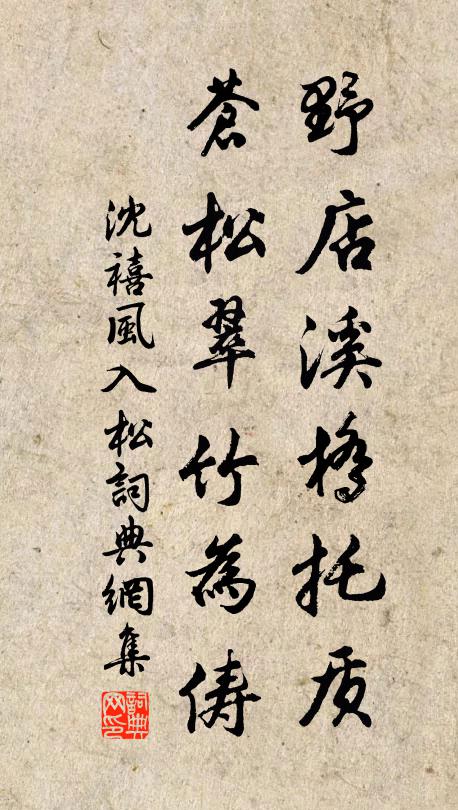 野店溪橋托质
蒼松翠竹為俦
沈禧風入松詞典網集
詞典网印